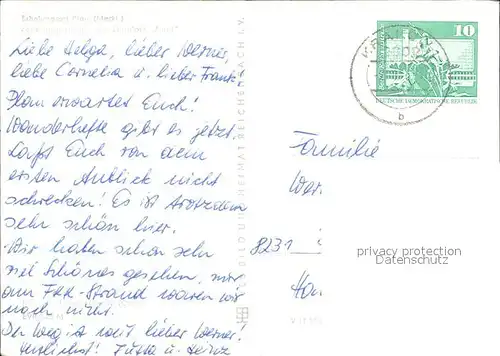 Erholungsort Plau (Meckl.)
Liebe Helga, lieber Werner,
liebe Cornelia u. lieber Frank
Plau erwartet Euch!
Wanderhefte gibt es jetzt.
Laßt Euch von dem
ersten Anblick nicht
schrecken! Es ist trotzdem
sehr schön hier.
Wir haben schon sehr
viel Schönes gesehen, nur
am FKK-Strand waren wir
noch nicht.
Der Weg ist weit lieber Werner!
Herzlichst! Jutta u. Heinz
BILD UND HEIMAT REICHENBACH I. V.
10
DEUTSCHE DEMOKRATISCHE REPUBLIK
b
Familie
Wer
8231
Hau
privacy protection
watermark